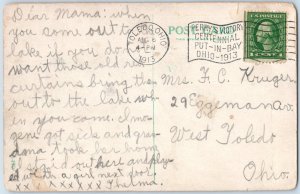 Dear Mama: when
you come out to
the lake if you don't
want those old
curtains bring them
out to the lake when
you come. Imo-
gene got sick and gran-
dma took her home
I staid out here and play-
ed with a girl next door
x x x x x x x Thelma.
POST
TOLEDO, OHIO
4-PM
1913
PERRY'S VICTORY
CENTENNIAL
PUT-IN-BAY
OHIO-1913
Mrs. H. C. Kruger
29 Eggeman av
West Toledo
Ohio.